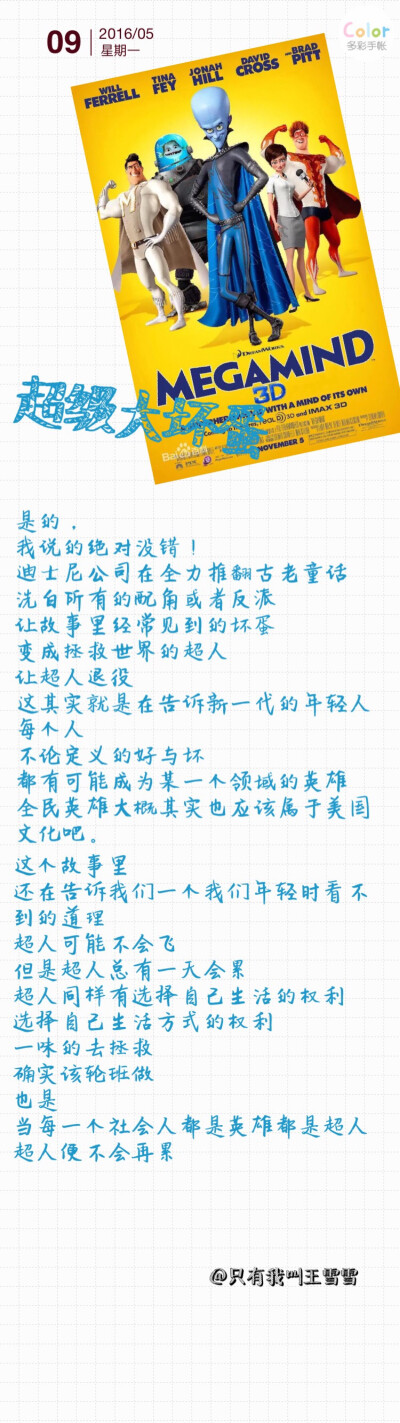 09
2016/05
星期一
Color
多彩手帐
WILL FERRELL
TINA FEY
JONAH HILL
DAVID CROSS
BRAD PITT
DREAMWORKS
MEGAMIND
3D
WITH A MIND OF ITS OWN
3D and IMAX 3D
NOVEMBER 5
超级大坏蛋
Bai
是的，
我说的绝对没错！
迪士尼公司在全力推翻古老童话
洗白所有的配角或者反派
让故事里经常见到的坏蛋
变成拯救世界的超人
让超人退役
这其实就是在告诉新一代的年轻人
每个人
不论定义的好与坏
都有可能成为某一个领域的英雄
全民英雄大概其实也应该属于美国
文化吧。
这个故事里
还在告诉我们一个我们年轻时看不
到的道理
超人可能不会飞
但是超人总有一天会累
超人同样有选择自己生活的权利
选择自己生活方式的权利
一味的去拯救
确实该轮班做
也是
当每一个社会人都是英雄都是超人
超人便不会再累
@只有我叫王雪雪